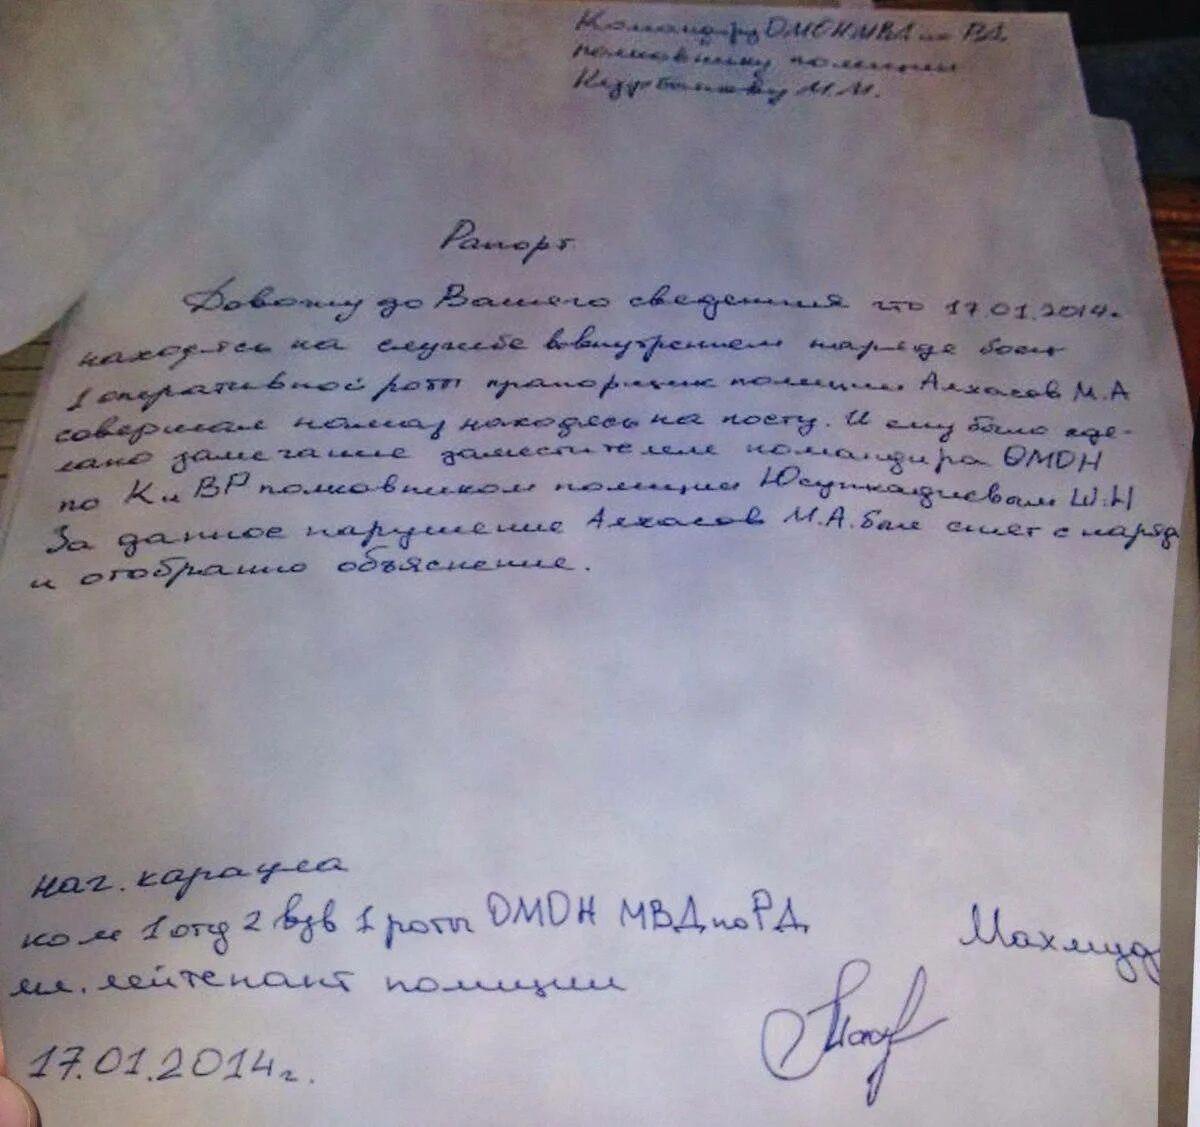 Командиру ОМОН МВД по РД
полковнику полиции
М.М.
Рапорт
Довожу до Вашего сведения что 17.01.2014г
находясь на службе во внутреннем наряде боец
1 оперативной роты прапорщик полиции Алхасов М.А
совершал намаз находясь на посту. И ему было сде-
лано замечание заместителем командира ОМОН
по К и ВР полковником полиции Юсупкадиевым Ш.Н
За данное нарушение Алхасов М.А. был снят с наряд
и отобранно объяснение.
нач. караула
ком 1 отд 2 взв 1 роты ОМОН МВД по РД
Махмуд
мл. лейтенант полиции
17.01.2014г.